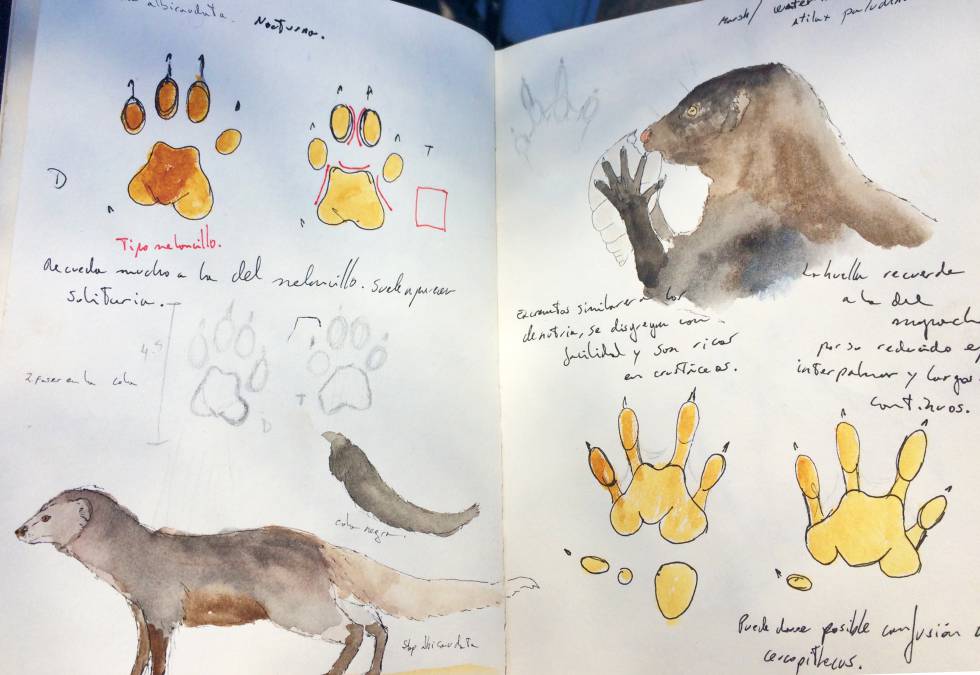 albicaudata.
Nocturna.
D
T
Tipo meloncillo.
Recuerda mucho a la del meloncillo. Suele aparecer
Solitaria.
4.5
en la cola
D
T
cola negra.
albicaudata
Marsh/ water
atilax paludin
Excrementos similares a los
de nutria, se disgregan con
facilidad y son ricos
en crustáceos.
La huella recuerda
a la del
mapache
por su reducido
interpalmar y largos
continuos.
Puede darse posible confusión
cercopitecos.